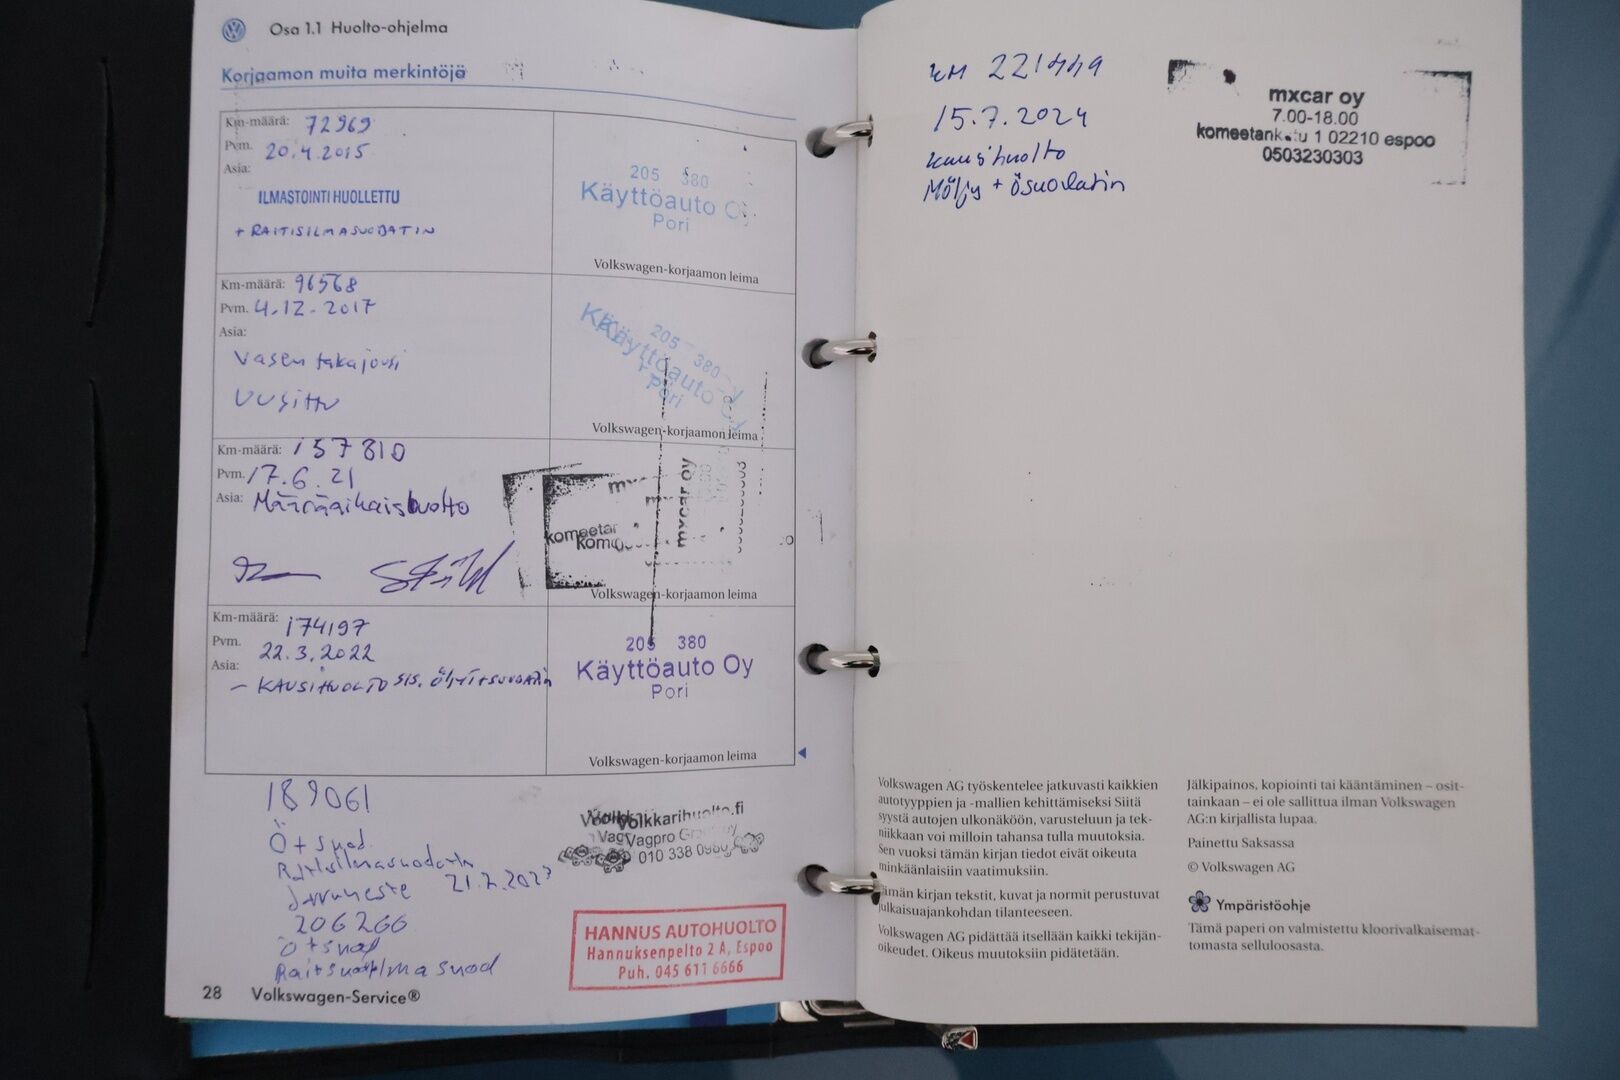 Osa 1.1 Huolto-ohjelma
Korjaamon muita merkintöjä
Km-määrä: 72969
Pvm. 20.4.2015
Asia:
ILMASTOINTI HUOLLETTU
+ RAITISILMASUODATIN
205 380
Käyttöauto Oy
Pori
Volkswagen-korjaamon leima
Km-määrä: 96568
Pvm. 4.12.2017
Asia:
Vasen takajousi
Uusittu
205 380
Käyttöauto Oy
Pori
Volkswagen-korjaamon leima
Km-määrä: 157810
Pvm. 17.6.21
Asia: Määräaikaishuolto
mxcar oy
Volkswagen-korjaamon leima
Km-määrä: 174197
Pvm. 22.3.2022
Asia:
- KAUSIHUOLTO SIS. ÖLJYT+SUODATIN
205 380
Käyttöauto Oy
Pori
Volkswagen-korjaamon leima
189061
Ö+suod.
Raitisilmasuodatin
Jarruneste 21.2.2023
206266
Ö+suod
Volkkarihuolto.fi
Vagpro
010 338 0980
HANNUS AUTOHUOLTO
Hannuksenpelto 2 A, Espoo
Puh. 045 611 6666
28 Volkswagen-Service®
KM 221449
15.7.2024
kausihuolto
Möljy + ösuodatin
mxcar oy
7.00-18.00
komeetankatu 1 02210 espoo
0503230303
Volkswagen AG työskentelee jatkuvasti kaikkien
autotyyppien ja -mallien kehittämiseksi Siitä
syystä autojen ulkonäköön, varusteluun ja tek-
niikkaan voi milloin tahansa tulla muutoksia.
Sen vuoksi tämän kirjan tiedot eivät oikeuta
minkäänlaisiin vaatimuksiin.
Tämän kirjan tekstit, kuvat ja normit perustuvat
julkaisuajankohdan tilanteeseen.
Volkswagen AG pidättää itsellään kaikki tekijän-
oikeudet. Oikeus muutoksiin pidätetään.
Jälkipainos, kopiointi tai kääntäminen – osit-
tainkaan – ei ole sallittua ilman Volkswagen
AG:n kirjallista lupaa.
Painettu Saksassa
© Volkswagen AG
Ympäristöohje
Tämä paperi on valmistettu kloorivalkaisemat-
tomasta selluloosasta.